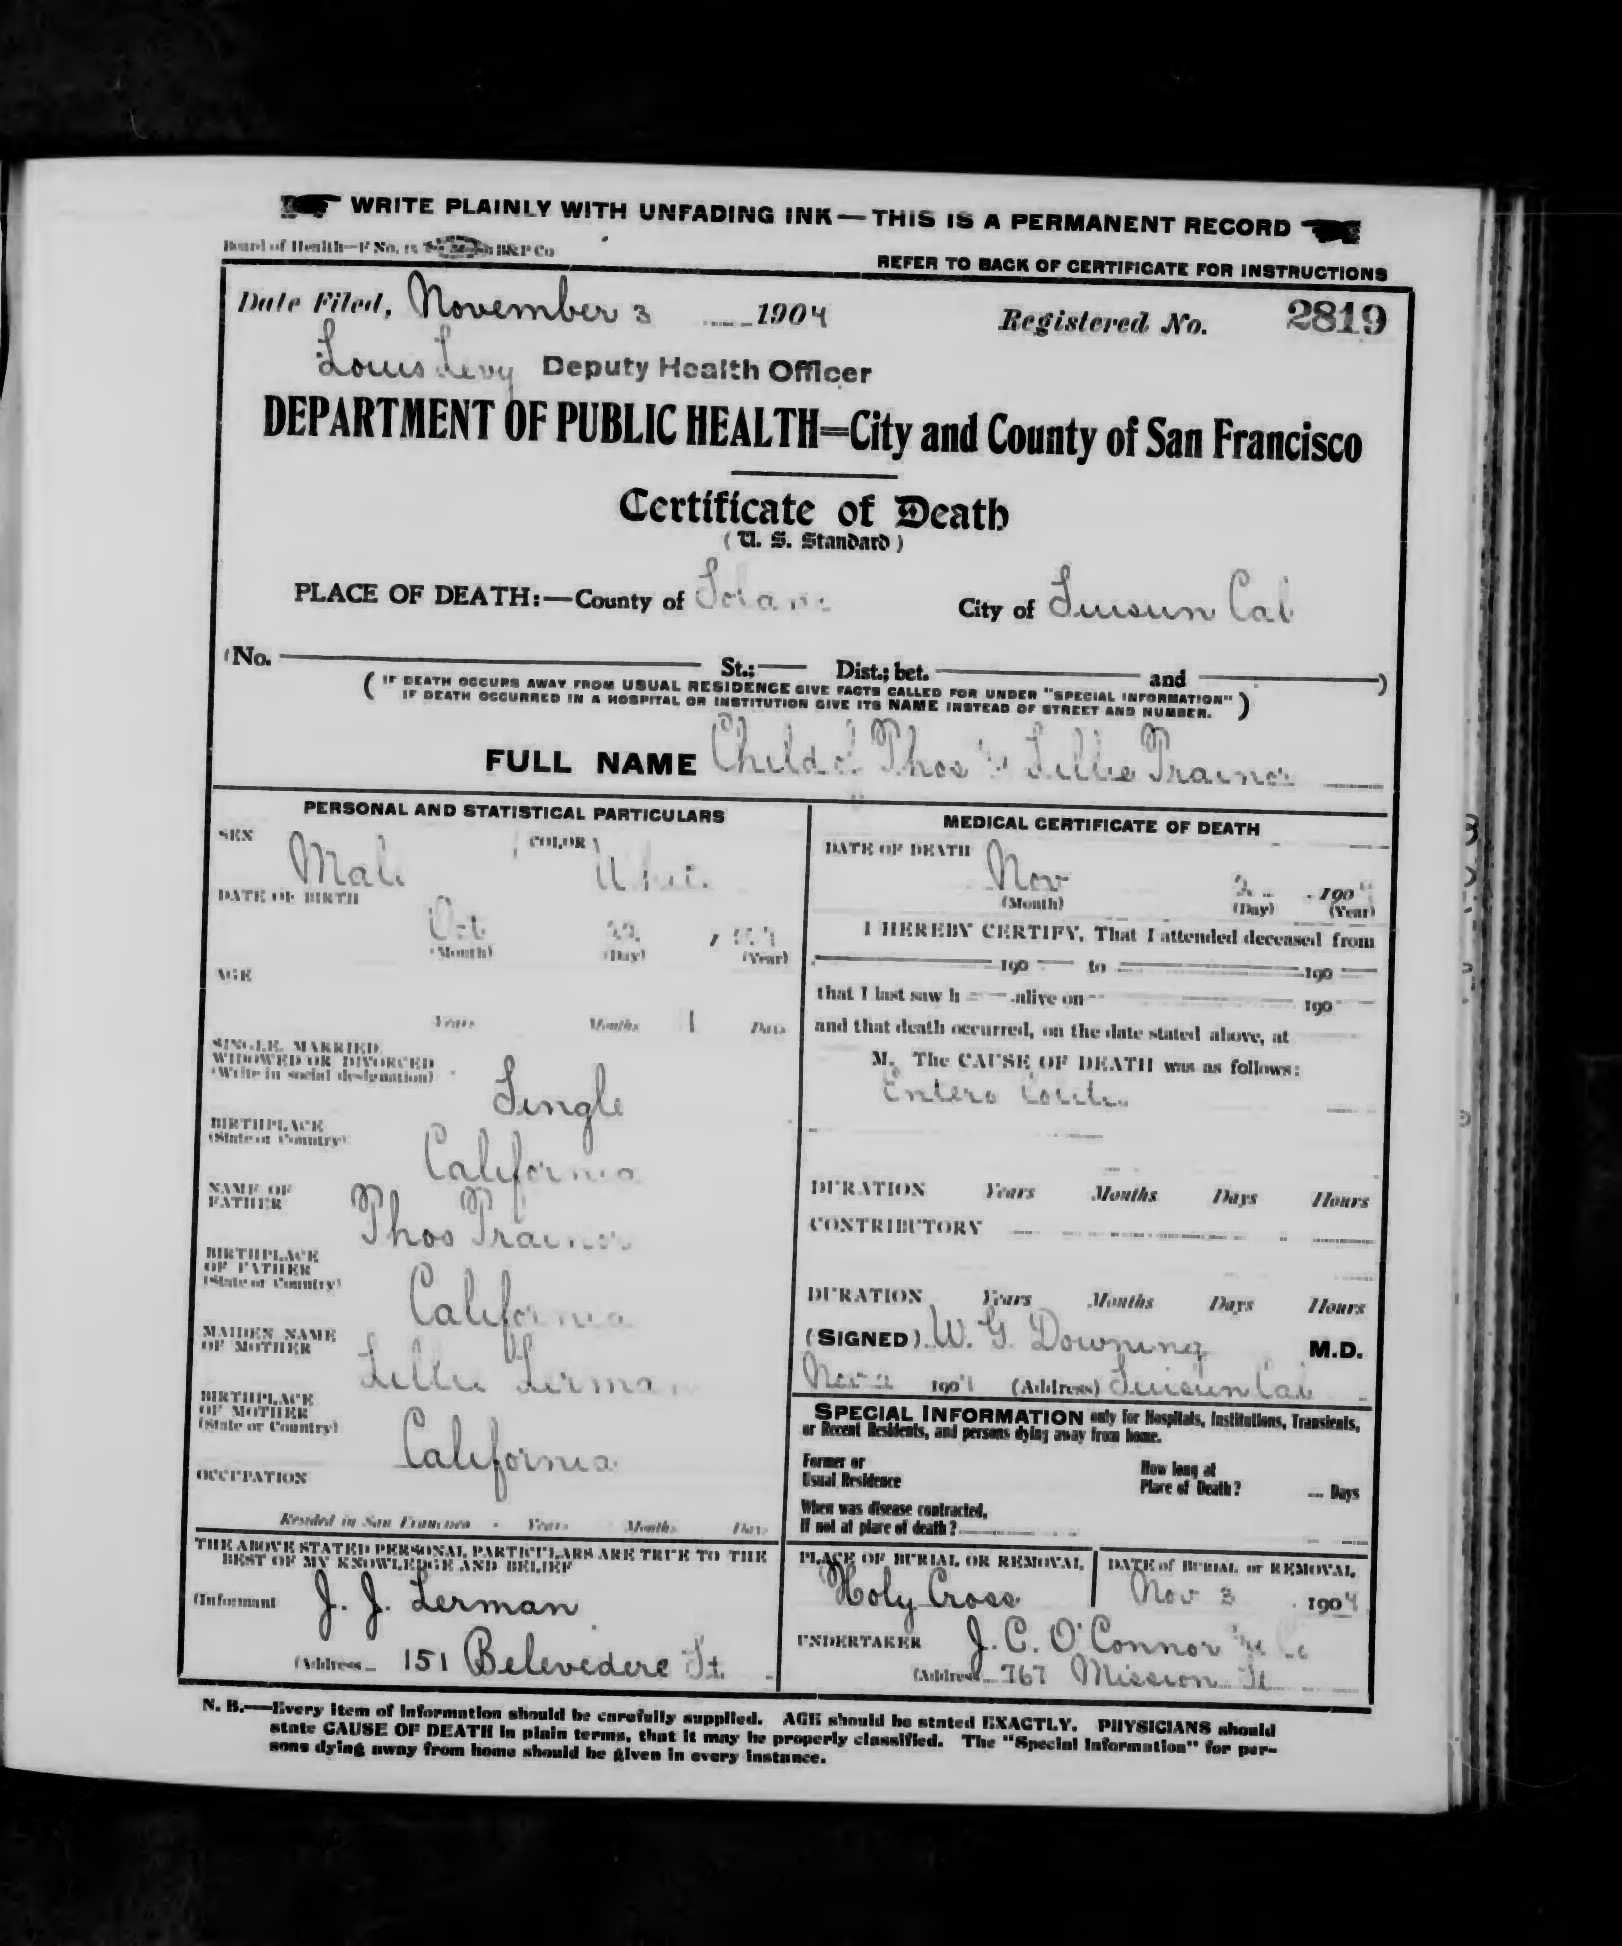 WRITE PLAINLY WITH UNFADING INK — THIS IS A PERMANENT RECORD
Board of Health—F No. 15 B&P Co
REFER TO BACK OF CERTIFICATE FOR INSTRUCTIONS
Date Filed, November 3 1904 Registered No. 2819
Louis Levy Deputy Health Officer
DEPARTMENT OF PUBLIC HEALTH=City and County of San Francisco
Certificate of Death
(U. S. Standard)
PLACE OF DEATH:—County of Solano City of Suisun Cal
(No. St.; Dist.; bet. and )
( IF DEATH OCCURS AWAY FROM USUAL RESIDENCE GIVE FACTS CALLED FOR UNDER "SPECIAL INFORMATION"
IF DEATH OCCURRED IN A HOSPITAL OR INSTITUTION GIVE ITS NAME INSTEAD OF STREET AND NUMBER. )
FULL NAME Child of Thos & Lillie Trainor
PERSONAL AND STATISTICAL PARTICULARS
SEX Male COLOR White
DATE OF BIRTH
Oct 22
(Month) (Day) (Year)
AGE
Years Months Days
SINGLE, MARRIED,
WIDOWED OR DIVORCED
(Write in social designation) Single
BIRTHPLACE
(State or Country) California
NAME OF
FATHER Thos Trainor
BIRTHPLACE
OF FATHER
(State or Country) California
MAIDEN NAME
OF MOTHER Lillie Lerman
BIRTHPLACE
OF MOTHER
(State or Country) California
OCCUPATION
Resided in San Francisco Years Months Days
THE ABOVE STATED PERSONAL PARTICULARS ARE TRUE TO THE
BEST OF MY KNOWLEDGE AND BELIEF
(Informant J. J. Lerman
(Address 151 Belevedere St.
MEDICAL CERTIFICATE OF DEATH
DATE OF DEATH
Nov 2 1904
(Month) (Day) (Year)
I HEREBY CERTIFY, That I attended deceased from
190 to 190
that I last saw h alive on 190
and that death occurred, on the date stated above, at
M. The CAUSE OF DEATH was as follows:
Entero Colitis
DURATION Years Months Days Hours
CONTRIBUTORY
DURATION Years Months Days Hours
(SIGNED) W. G. Downing M.D.
Nov 2 1904 (Address) Suisun Cal
SPECIAL INFORMATION only for Hospitals, Institutions, Transients,
or Recent Residents, and persons dying away from home.
Former or
Usual Residence
How long at
Place of Death? Days
When was disease contracted,
If not at place of death?
PLACE OF BURIAL OR REMOVAL
Holy Cross
DATE of BURIAL or REMOVAL
Nov 3 1904
UNDERTAKER J. C. O'Connor & Co
(Address 767 Mission St
N. B.—Every item of information should be carefully supplied. AGE should be stated EXACTLY. PHYSICIANS should
state CAUSE OF DEATH in plain terms, that it may be properly classified. The "Special Information" for per-
sons dying away from home should be given in every instance.